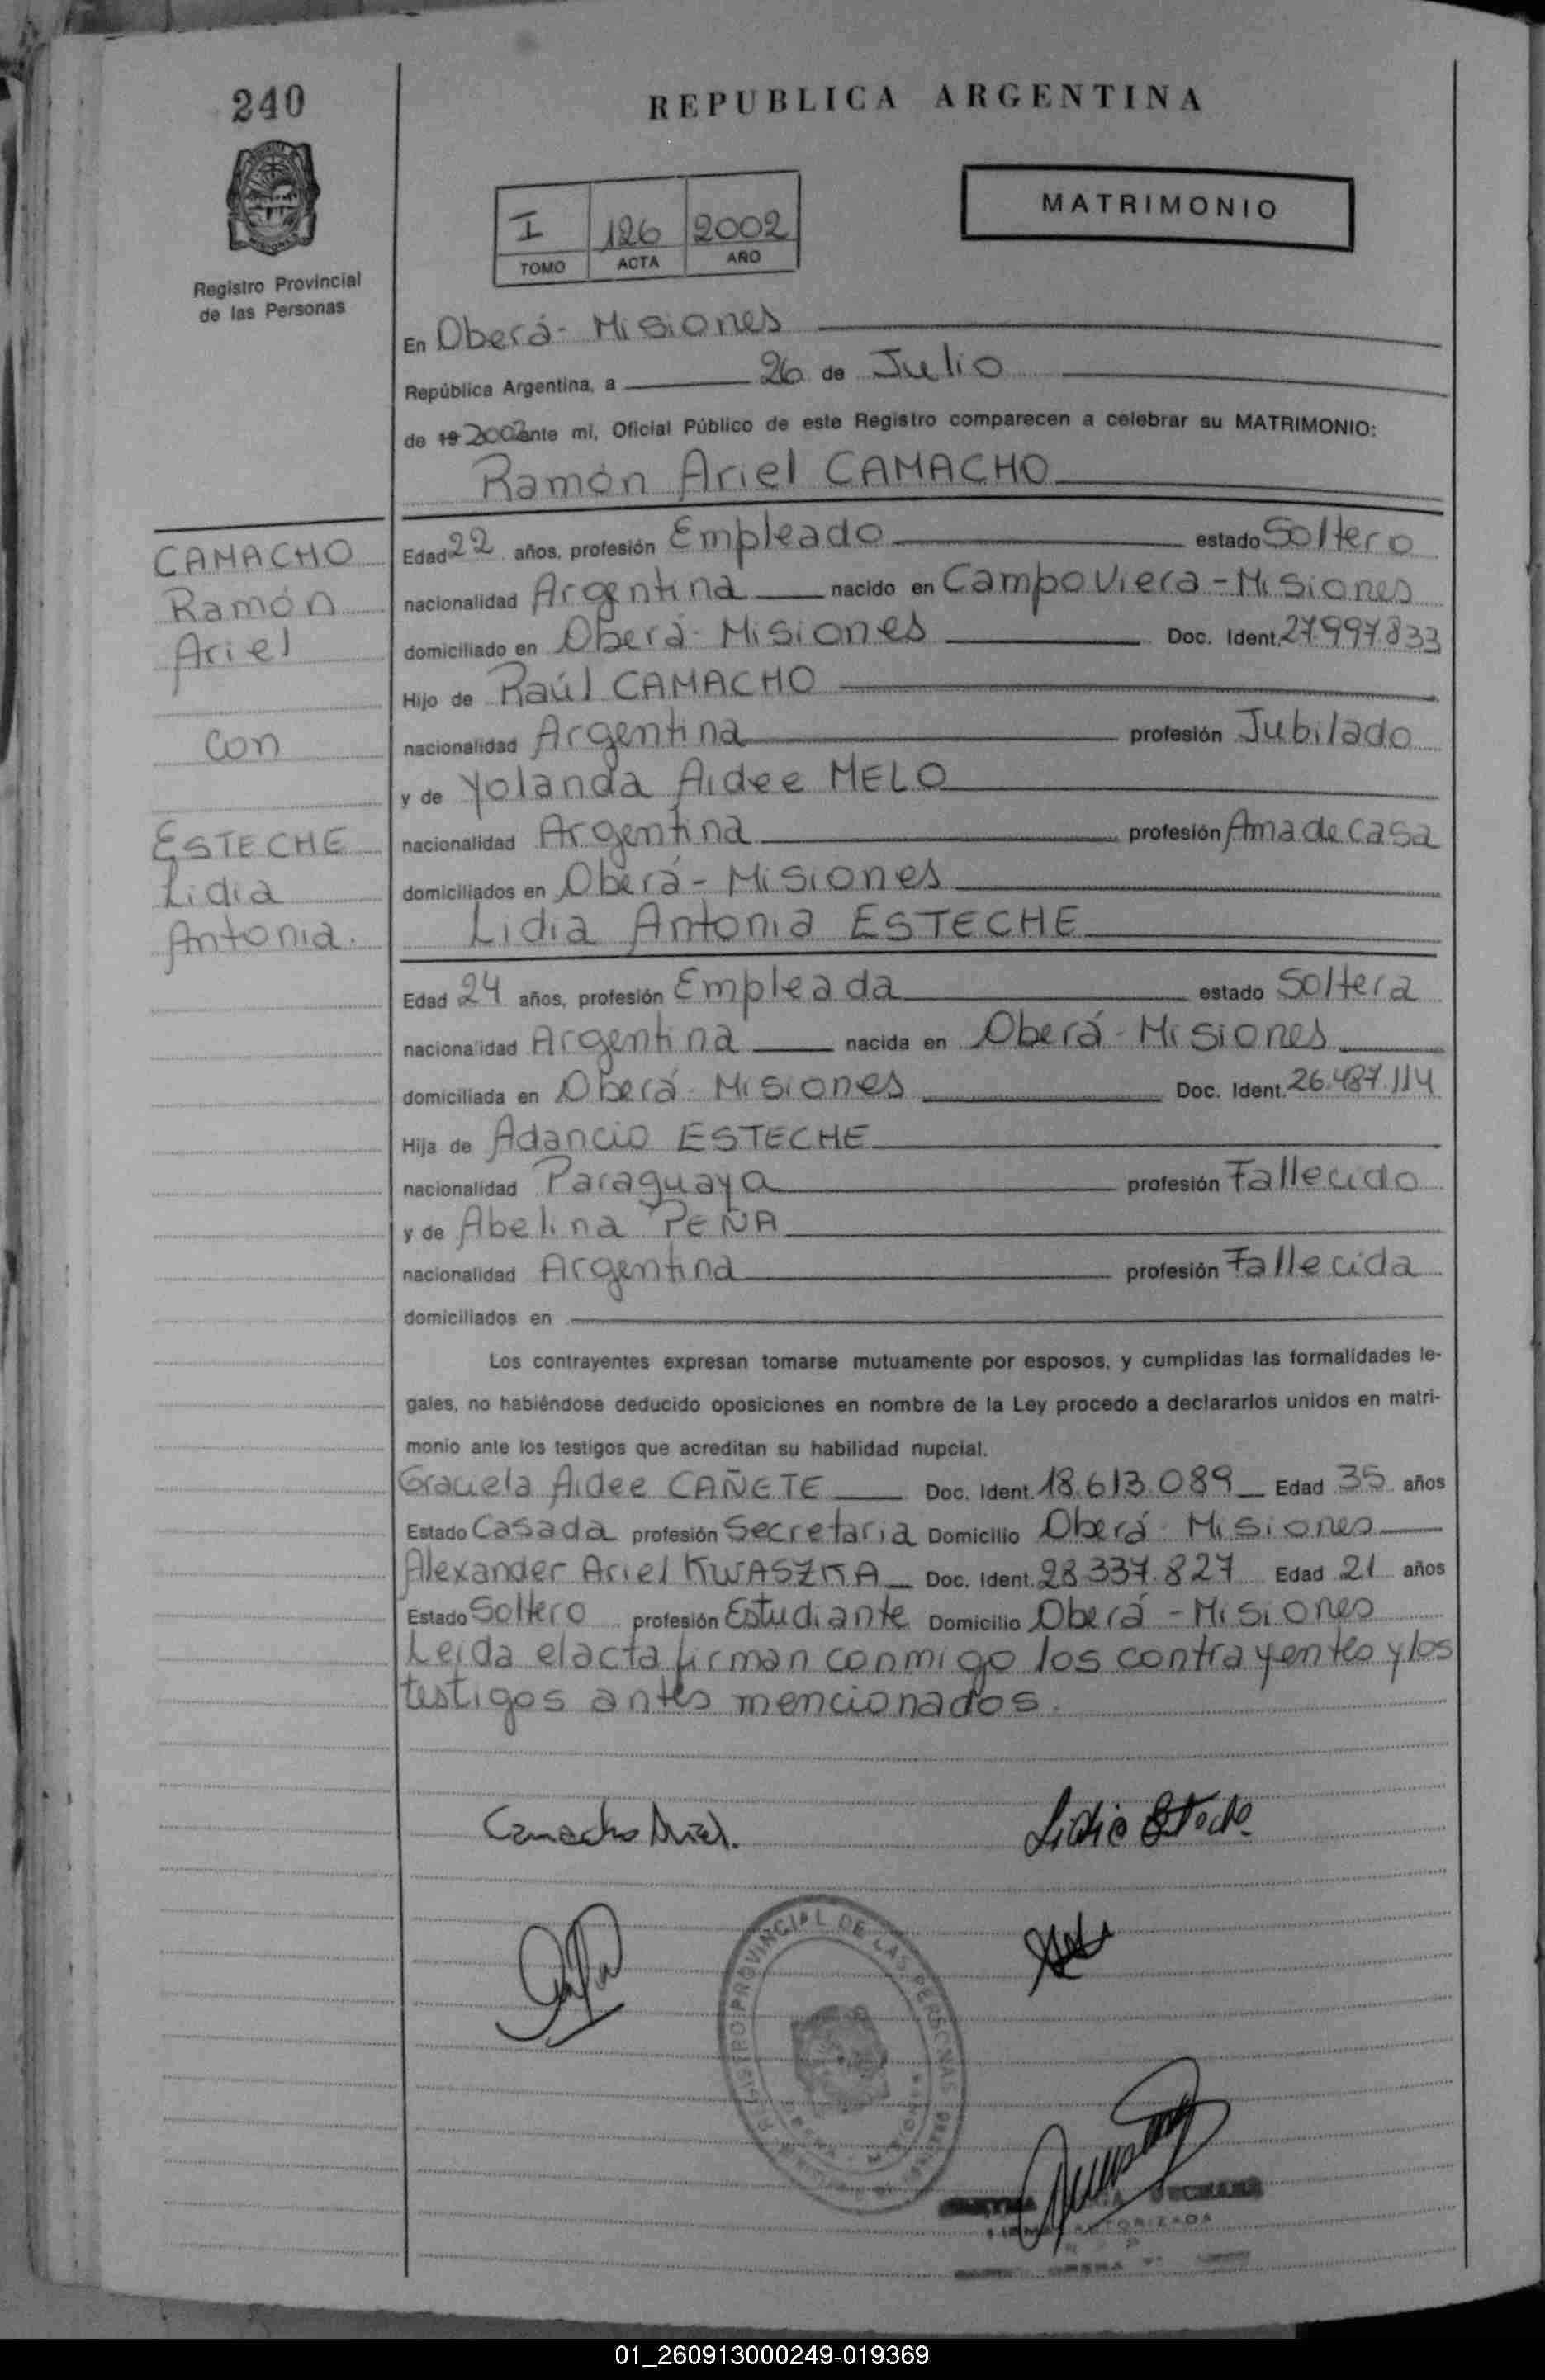 240
REPUBLICA ARGENTINA
MATRIMONIO
I 126 2002
TOMO ACTA AÑO
Registro Provincial
de las Personas
En Oberá - Misiones
República Argentina, a 26 de Julio
de 19 2002 ante mi, Oficial Público de este Registro comparecen a celebrar su MATRIMONIO:
Ramón Ariel CAMACHO
CAMACHO
Ramón
Ariel
con
ESTECHE
Lidia
Antonia.
Edad 22 años, profesión Empleado estado Soltero
nacionalidad Argentina nacido en Campo Viera - Misiones
domiciliado en Oberá - Misiones Doc. Ident. 27.997.833
Hijo de Raúl CAMACHO
nacionalidad Argentina profesión Jubilado
y de Yolanda Aidee MELO
nacionalidad Argentina profesión Ama de casa
domiciliados en Oberá - Misiones
Lidia Antonia ESTECHE
Edad 24 años, profesión Empleada estado Soltera
nacionalidad Argentina nacida en Oberá - Misiones
domiciliada en Oberá - Misiones Doc. Ident. 26.487.114
Hija de Adancio ESTECHE
nacionalidad Paraguaya profesión Fallecido
y de Abelina PEÑA
nacionalidad Argentina profesión Fallecida
domiciliados en
Los contrayentes expresan tomarse mutuamente por esposos, y cumplidas las formalidades le-
gales, no habiéndose deducido oposiciones en nombre de la Ley procedo a declararlos unidos en matri-
monio ante los testigos que acreditan su habilidad nupcial.
Graciela Aidee CAÑETE Doc. Ident. 18.613.089 Edad 35 años
Estado Casada profesión Secretaria Domicilio Oberá - Misiones
Alexander Ariel KWASZKA Doc. Ident. 28.337.827 Edad 21 años
Estado Soltero profesión Estudiante Domicilio Oberá - Misiones
Leida el acta firman conmigo los contrayentes y los
testigos antes mencionados.
Camacho Ariel.
Lidia Esteche
REGISTRO PROVINCIAL DE LAS PERSONAS
AUTORIZADA
01_260913000249-019369